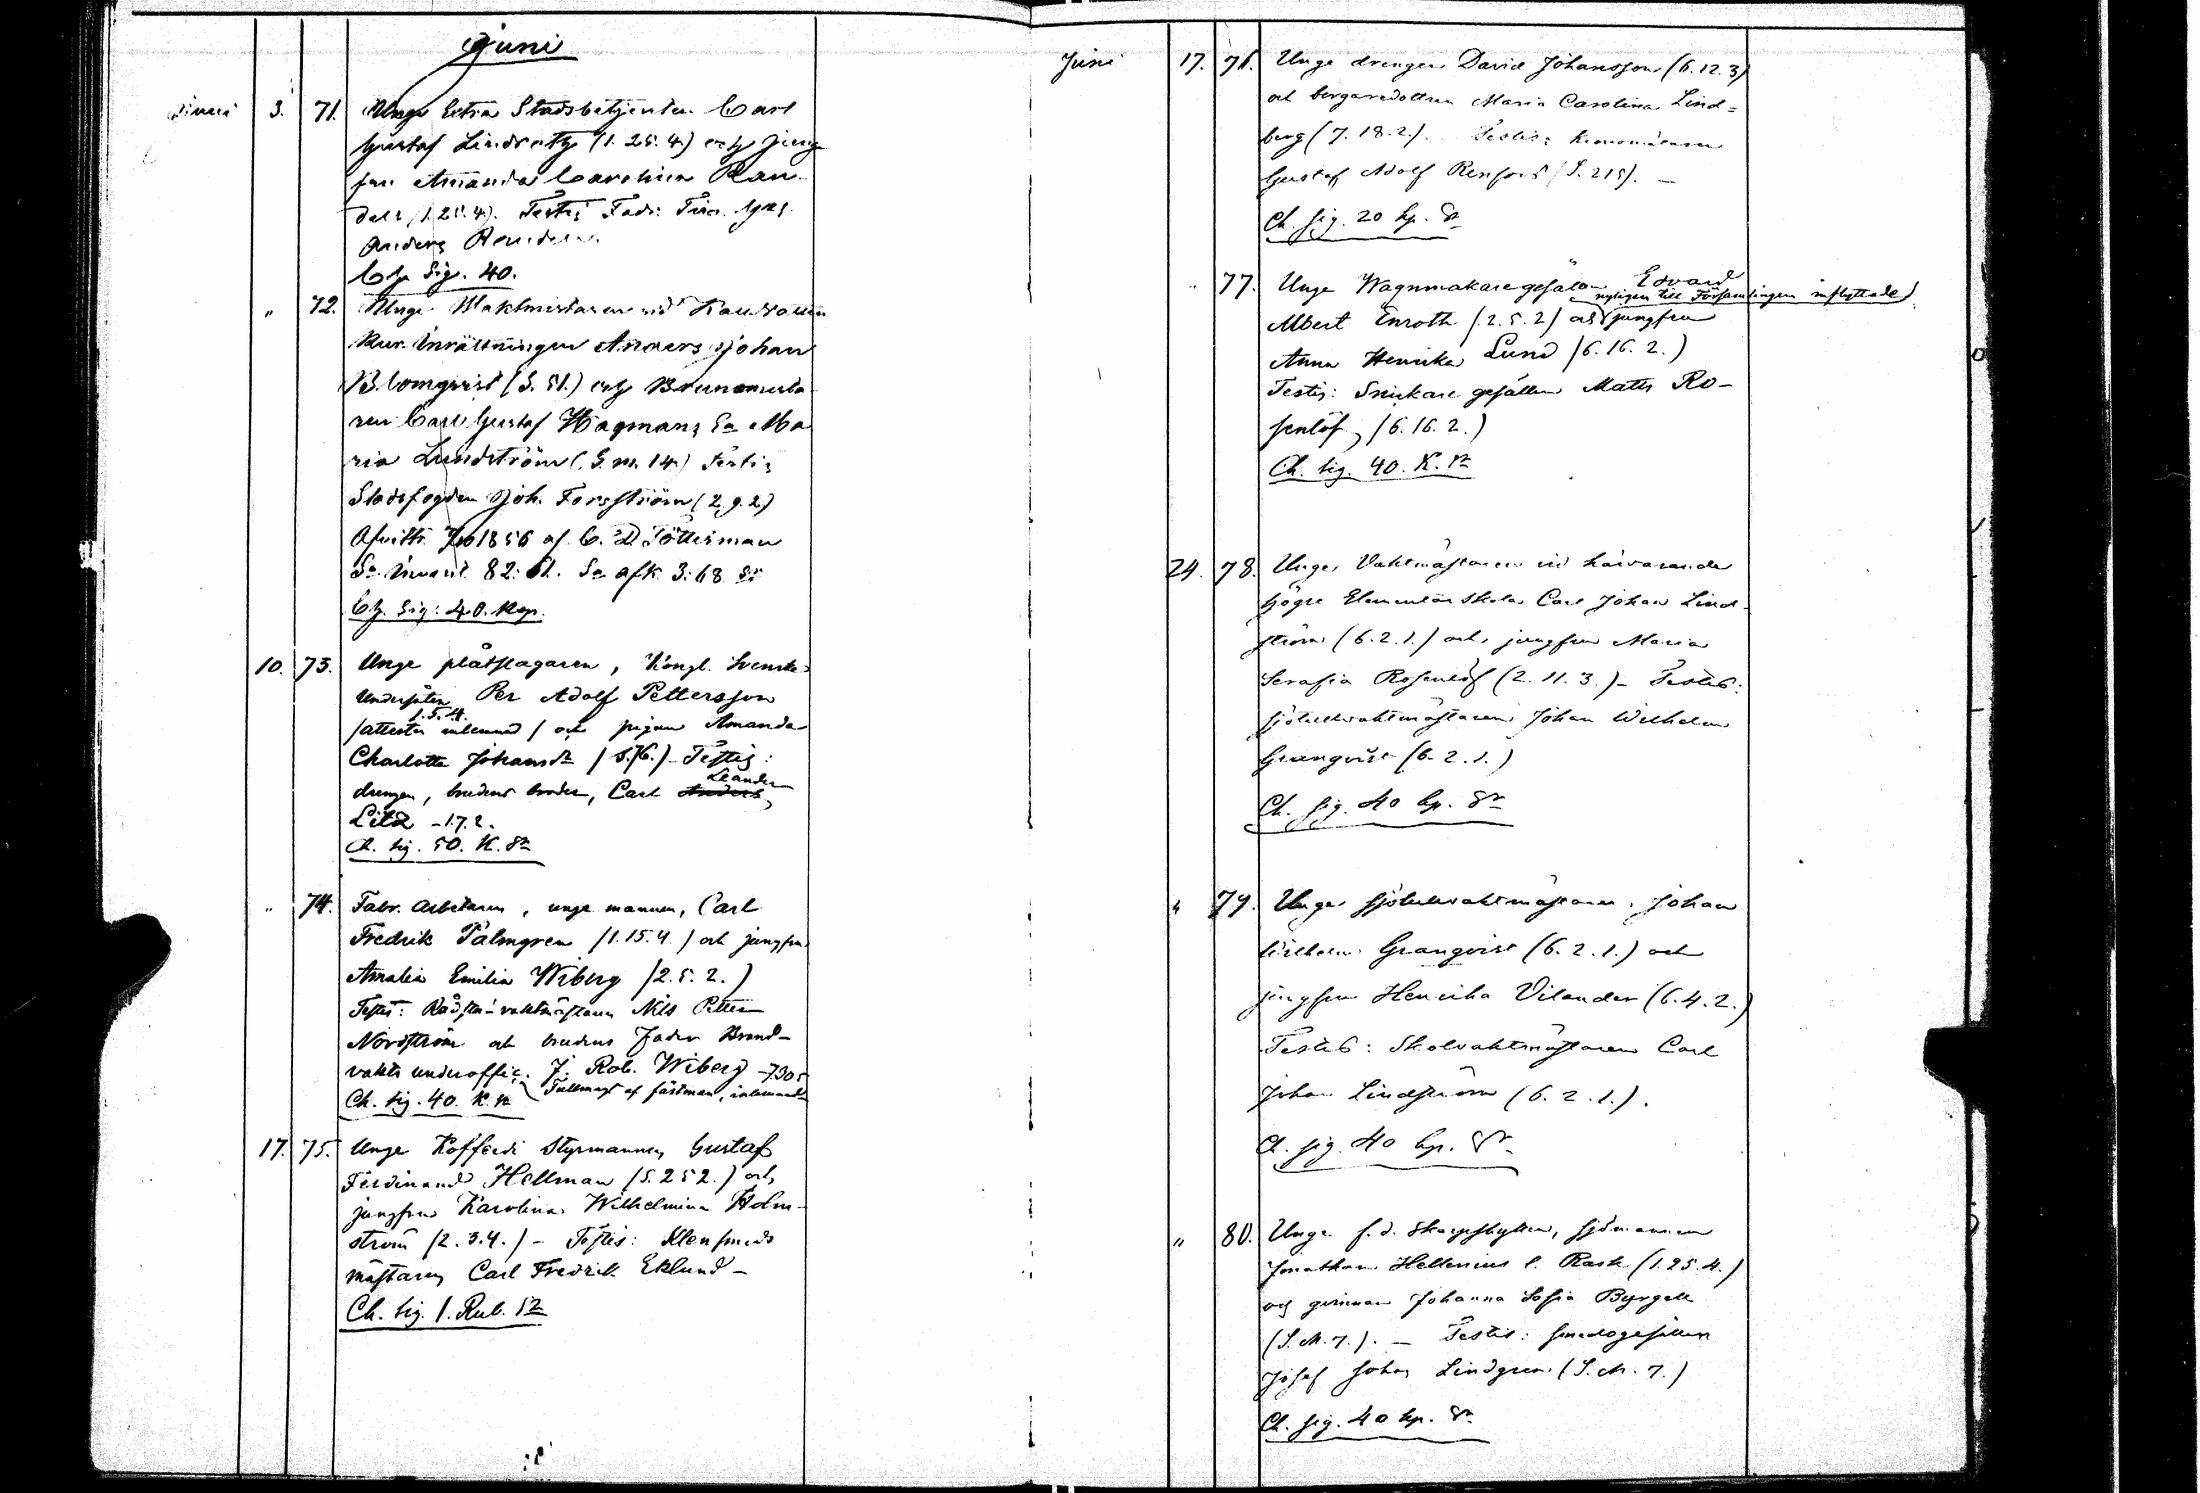 Juni
Juni 3. 71. Unge Extra Stadsbetjenten Carl
Gustaf Lindrotz (1. 25. 4.) och jung
frun Amanda Carolina Ran-
Testis
Anders
Ch Sig. 40.
" 72. Unge Waktmästaren vid
Kur. Inrättningen Anders Johan
Blomqvist (S. 51.) och
ren Carl Gustaf Wagmans Ea Ma
ria Lundström (S. m. 14.) Testis
Stadsfogden Joh. Forsström (2. 9. 2)
Afvittr. 1856 af C. D. Tötterman
Sa. Invent. 82: 61. Sa afk. 3: 68 Sr
Ch. Sig: 40. Kop.
10. 73. Unge plåtslagaren, Kongl. Svenske
Undersåten Per Adolf Pettersson
1. 5. 4.
/attester inlemnad/ och pigan Amanda
Charlotta Johansdr / S. 76.) - Testis:
Leander
drengen, brudens broder, Carl Anders,
Litz - 1. 7. 2.
Ch. sig. 50. K. Sr
" 74. Fabr. Arbetaren, unge mannen, Carl
Fredrik Palmgren /1. 15. 4./ och jungfrun
Amalia Emilia Wiberg /2. 5. 2.)
Testis: Rådstu-vaktmästaren Nils Petter
Nordström och brudens fader Brand-
vakts underoffic. J. Rob. Wiberg - 7.30 5
Ch. sig. 40. K. Sr Fullmagt af fästman, inlemnad
17. 75. Unge Kofferdi Styrmannen Gustaf
Ferdinand Hellman (S. 252.) och
jungfrun Karolina Wilhelmina Holm-
ström /2. 3. 4./ - Testis: Klensmeds
mästaren Carl Fredrik Eklund -
Ch. sig. 1. Rub. Sr
Juni 17. 76. Unge drengen David Johansson (6. 12. 3)
och borgaredottren Maria Carolina Lind=
berg (7. 18. 2.). Testis:
Gustaf Adolf Renfors (S. 215). -
Ch. sig. 20 kp. Sr
" 77. Unge Wagnmakaregesällen Edvard
nyligen till Församlingen inflyttade)
Albert Enroth /2. 5. 2/ och jungfrun
Anna Henrika Lund /6. 16. 2.)
Testis: Snickare gesällen Matts Ro-
senlöf, /6. 16. 2.)
Ch. sig. 40. K. Sr
24. 78. Unge Vaktmästaren vid härvarande
högre Elementärskola Carl Johan Lind-
ström (6. 2. 1.) och jungfrun Maria
Serafia Rosenlöf (2. 11. 3.) - Testis:
sjötullvaktmästaren Johan Wilhelm
Granqvist (6. 2. 1.)
Ch. sig. 40 kp. Sr
" 79. Unge sjötullvaktmästaren Johan
Wilhelm Granqvist (6. 2. 1.) och
jungfrun Henrika Vilander (6. 4. 2.)
Testis: Skolvaktmästaren Carl
Johan Lindström (6. 2. 1.).
Ch. sig. 40 kp. Sr
" 80. Unge f. d. Skarpskytten, sjömannen
Jonathan Hellenius l. Rask (1. 25. 4.)
och qvinnan Johanna Sofia Byrgell
(S. M. 7.). - Testis: smedsgesällen
Josef Johan Lindgren (S. M. 7.)
Ch. sig. 40 kp. Sr